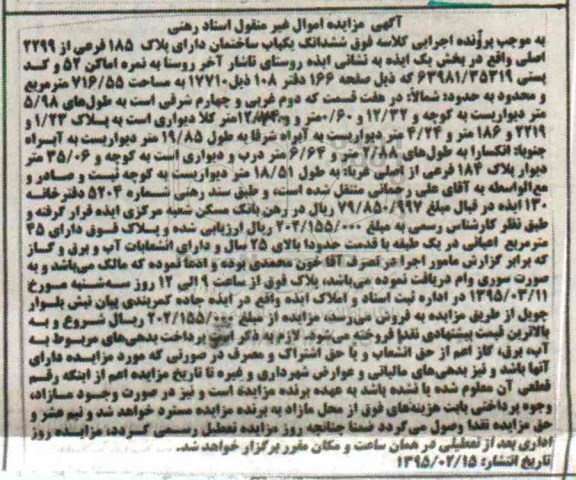 آگهی مزایده اموال غیر منقول اسناد رهنی
به موجب پرونده اجرایی کلاسه فوق ششدانگ یکباب ساختمان دارای پلاک ۱۸۵ فرعی از ۲۲۹۹
اصلی واقع در بخش یک ایذه به نشانی ایذه روستای تاشار آخر روستا به نمره اماکن ۵۲ و کد
پستی ۶۳۹۸۱/۳۵۳۱۹ که ذیل صفحه ۱۶۶ دفتر ۱۰۸ ذیل ۱۷۷۱۰ به مساحت ۷۱۶/۵۵ مترمربع
و محدود به حدود: شمالاً: در هفت قسمت که دوم غربی و چهارم شرقی است به طول‌های ۵/۹۸
متر دیواریست به کوچه و ۱۲/۳۲ و ۰/۶۰ متر و متر کلا دیواری است به پلاک ۱/۲۳ و
۲۲۱۹ و ۱۸۶ متر و ۴/۲۴ متر دیواریست به آبراه شرقا به طول ۱۹/۸۵ متر دیواریست به آبراه
جنوبا: انکسارا به طول‌های متر و ۶/۶۴ متر درب و دیواری است به کوچه و ۳۵/۰۶ متر
دیوار پلاک ۱۸۴ فرعی از اصلی غربا: به طول ۱۸/۵۱ متر دیواریست به کوچه ثبت و صادر و
مع‌الواسطه به آقای علی رحمانی منتقل شده است، و طبق سند رهنی شماره ۵۲۰۴ دفترخانه
۱۳۰ ایذه در قبال مبلغ ۷۹/۸۵۰/۹۹۷ ریال در رهن بانک مسکن شعبه مرکزی ایذه قرار گرفته و
طبق نظر کارشناس رسمی به مبلغ ۲۰۲/۱۵۵/۰۰۰ ریال ارزیابی شده و پلاک فوق دارای ۴۵
مترمربع اعیانی در یک طبقه با قدمت حدودا بالای ۲۵ سال و دارای انشعابات آب و برق و گاز
که برابر گزارش مامور اجرا در تصرف آقا خون محمدی بوده و ادعا نموده که مالک می‌باشد و به
صورت سوری وام دریافت نموده می‌باشد، پلاک فوق از ساعت ۹ الی ۱۲ روز سه‌شنبه مورخ
۱۳۹۵/۰۳/۱۱ در اداره ثبت اسناد و املاک ایذه واقع در ایذه جاده کمربندی پیان نبش بلوار
چویل از طریق مزایده به فروش می‌رسد، مزایده از مبلغ ۲۰۲/۱۵۵/۰۰۰ ریال شروع و به
بالاترین قیمت پیشنهادی نقدا فروخته می‌شود. لازم به ذکر است پرداخت بدهی‌های مربوط به
آب، برق، گاز اعم از حق انشعاب و یا حق اشتراک و مصرف در صورتی که مورد مزایده دارای
آنها باشد و نیز بدهی‌های مالیاتی و عوارض شهرداری و غیره تا تاریخ مزایده اعم از اینکه رقم
قطعی آن معلوم شده یا نشده باشد به عهده برنده مزایده است و نیز در صورت وجود مازاد،
وجوه پرداختی بابت هزینه‌های فوق از محل مازاد به برنده مزایده مسترد خواهد شد و نیم عشر و
حق مزایده نقدا وصول می‌گردد ضمنا چنانچه روز مزایده تعطیل رسمی گردد، مزایده روز
اداری بعد از تعطیلی در همان ساعت و مکان مقرر برگزار خواهد شد.
تاریخ انتشار: ۱۳۹۵/۰۲/۱۵